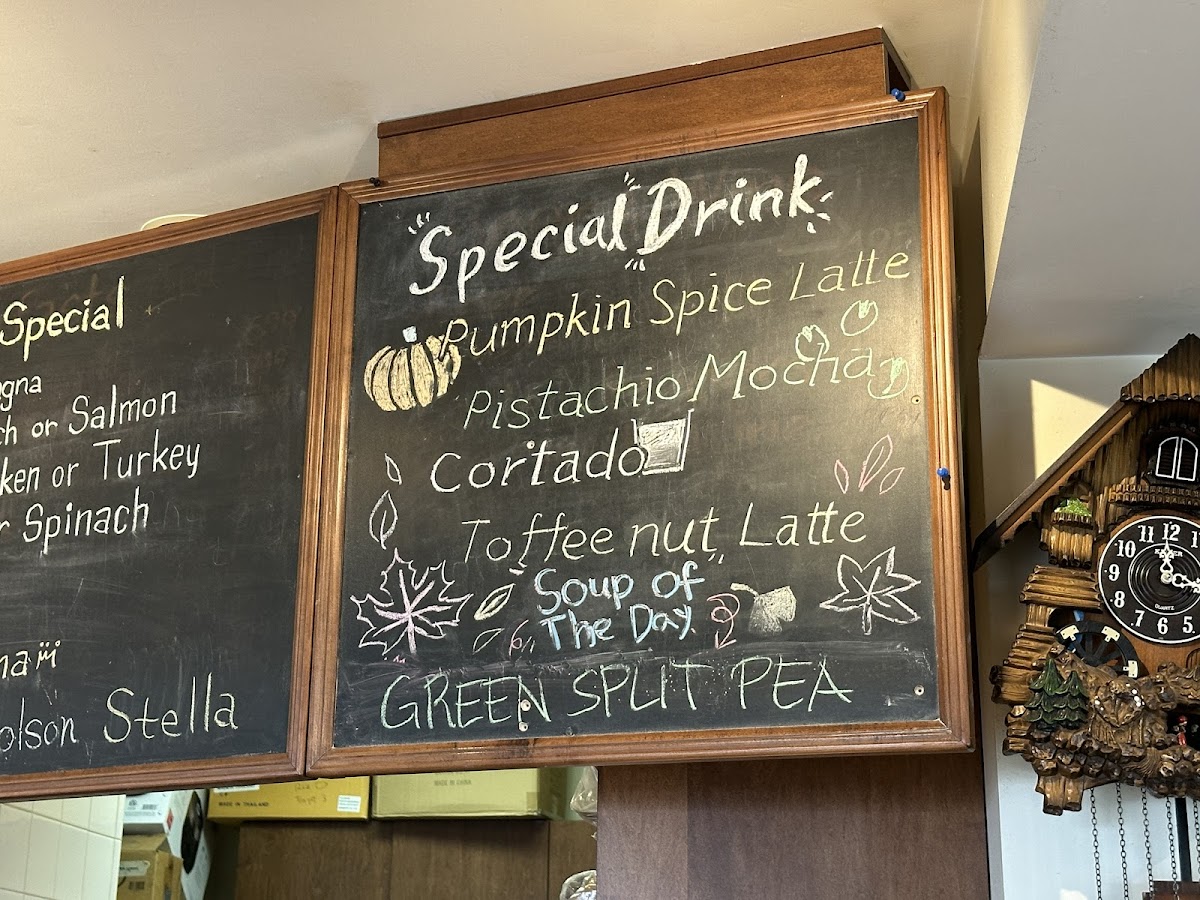 Special
or Salmon
or Turkey
Spinach
Stella
Special Drink
Pumpkin Spice Latte
Pistachio Mocha
Cortado
Toffee nut Latte
Soup of
The Day
GREEN SPLIT PEA
MADE IN THAILAND
MADE IN CHINA
10 11 12
9
8
7 6 5
QUARTZ